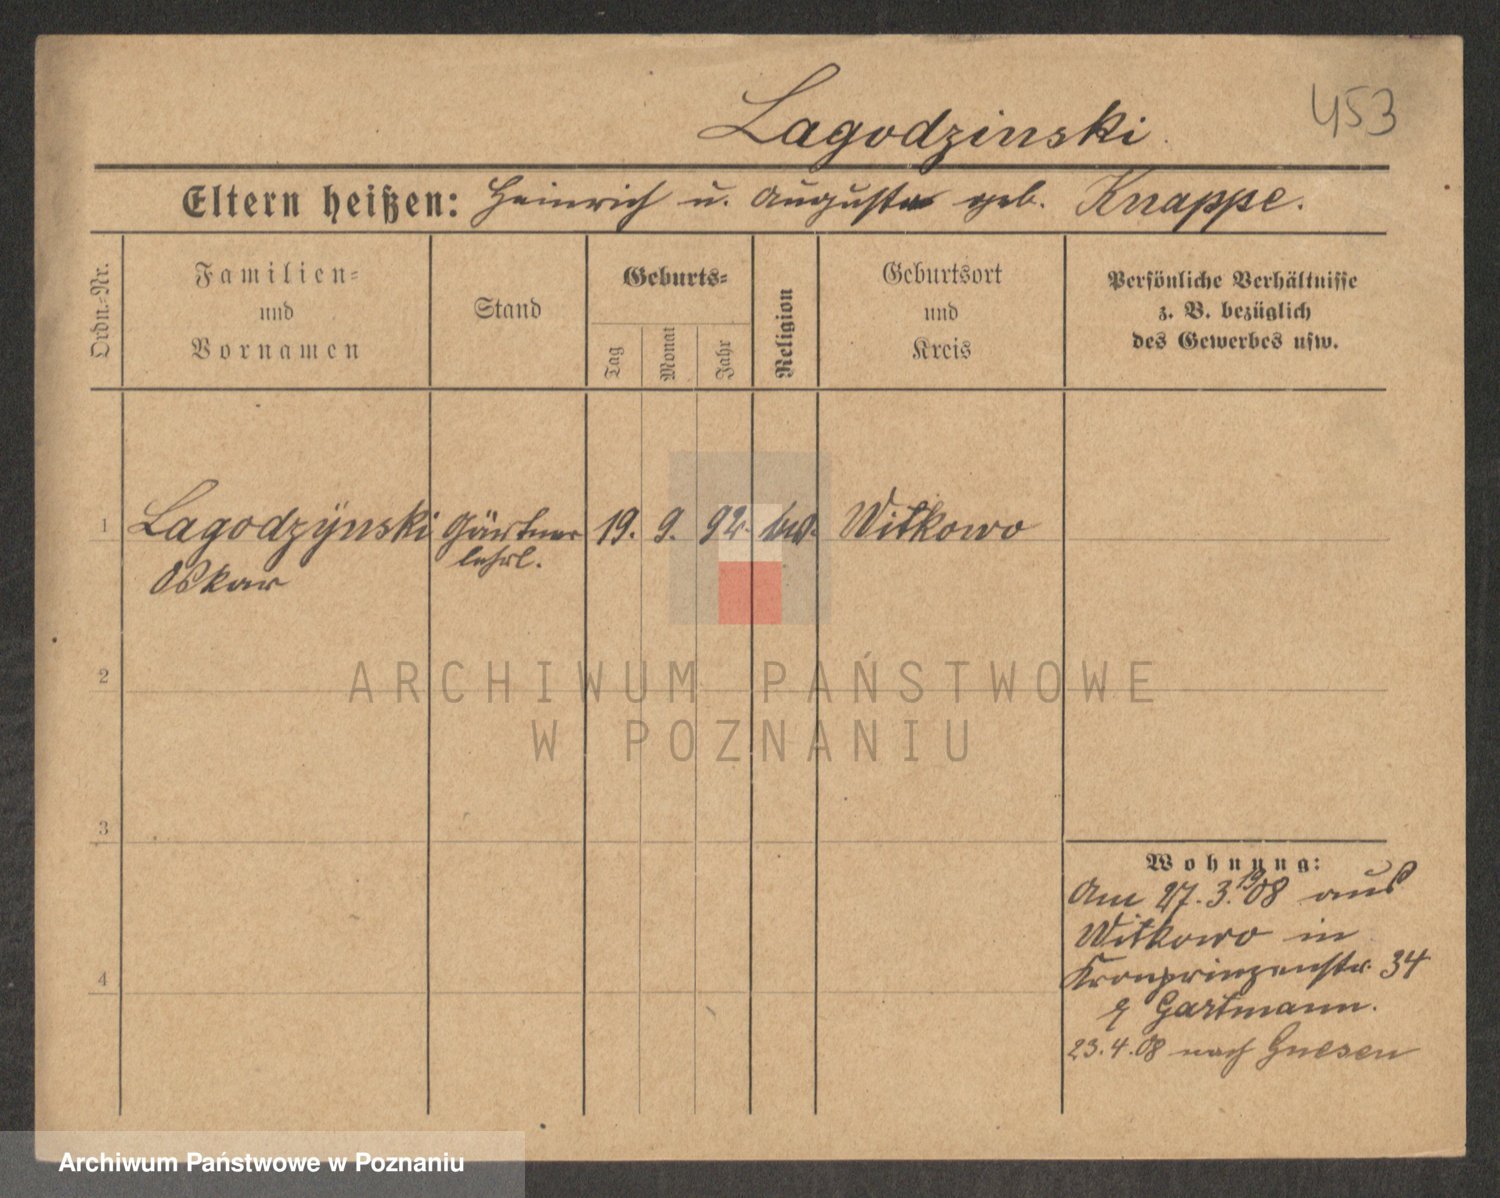 453
Lagodzinski
Eltern heißen: Heinrich u. Auguste geb. Knappe.
Ordn.-Nr.
Familien-
und
Vornamen
Stand
Geburts-
Tag
Monat
Jahr
Religion
Geburtsort
und
Kreis
Persönliche Verhältnisse
z. B. bezüglich
des Gewerbes usw.
1
Lagodzÿnski
Oskar
Gärtner
lehrl.
19.
9.
92.
Witkowo
2
ARCHIWUM PAŃSTWOWE
W POZNANIU
3
4
Wohnung:
Am 27.3.1908 aus
Witkowo in
Kronprinzenstr. 34
Gartmann.
23.4.08 nach Gnesen
Archiwum Państwowe w Poznaniu